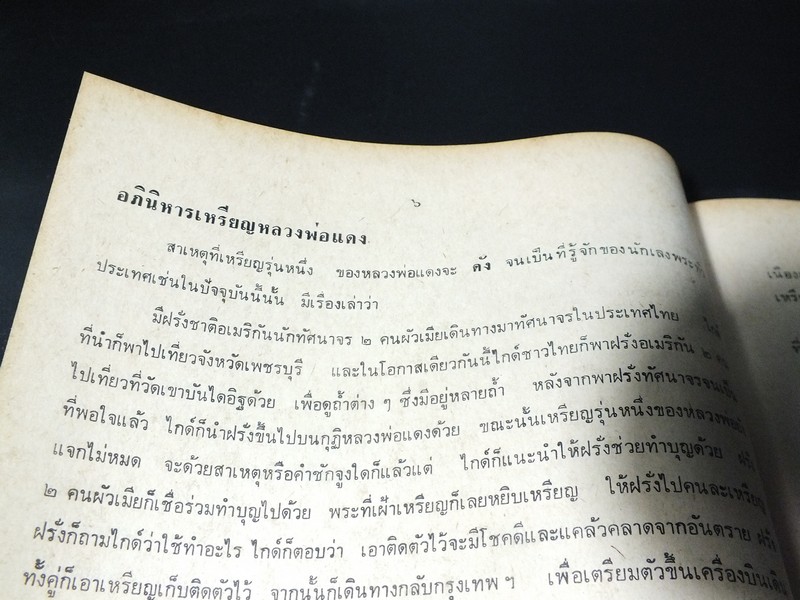 ๖
อภินิหารเหรียญหลวงพ่อแดง
สาเหตุที่เหรียญรุ่นหนึ่ง ของหลวงพ่อแดงจะ ดัง จนเป็นที่รู้จักของนักเลงพระทั่ว
ประเทศเช่นในปัจจุบันนี้นั้น มีเรื่องเล่าว่า
มีฝรั่งชาติอเมริกันนักทัศนาจร ๒ คนผัวเมียเดินทางมาทัศนาจรในประเทศไทย ไกด์
ที่นำก็พาไปเที่ยวจังหวัดเพชรบุรี และในโอกาสเดียวกันนี้ไกด์ชาวไทยก็พาฝรั่งอเมริกัน ๒ คน
ไปเที่ยวที่วัดเขาบันไดอิฐด้วย เพื่อดูถ้ำต่าง ๆ ซึ่งมีอยู่หลายถ้ำ หลังจากพาฝรั่งทัศนาจรจนเป็น
ที่พอใจแล้ว ไกด์ก็นำฝรั่งขึ้นไปบนกุฏิหลวงพ่อแดงด้วย ขณะนั้นเหรียญรุ่นหนึ่งของหลวงพ่อยัง
แจกไม่หมด จะด้วยสาเหตุหรือคำชักจูงใดก็แล้วแต่ ไกด์ก็แนะนำให้ฝรั่งช่วยทำบุญด้วย ฝรั่ง
๒ คนผัวเมียก็เชื่อร่วมทำบุญไปด้วย พระที่เฝ้าเหรียญก็เลยหยิบเหรียญ ให้ฝรั่งไปคนละเหรียญ
ฝรั่งก็ถามไกด์ว่าใช้ทำอะไร ไกด์ก็ตอบว่า เอาติดตัวไว้จะมีโชคดีและแคล้วคลาดจากอันตราย ฝรั่ง
ทั้งคู่ก็เอาเหรียญเก็บติดตัวไว้ จากนั้นก็เดินทางกลับกรุงเทพ ฯ เพื่อเตรียมตัวขึ้นเครื่องบินเดิน